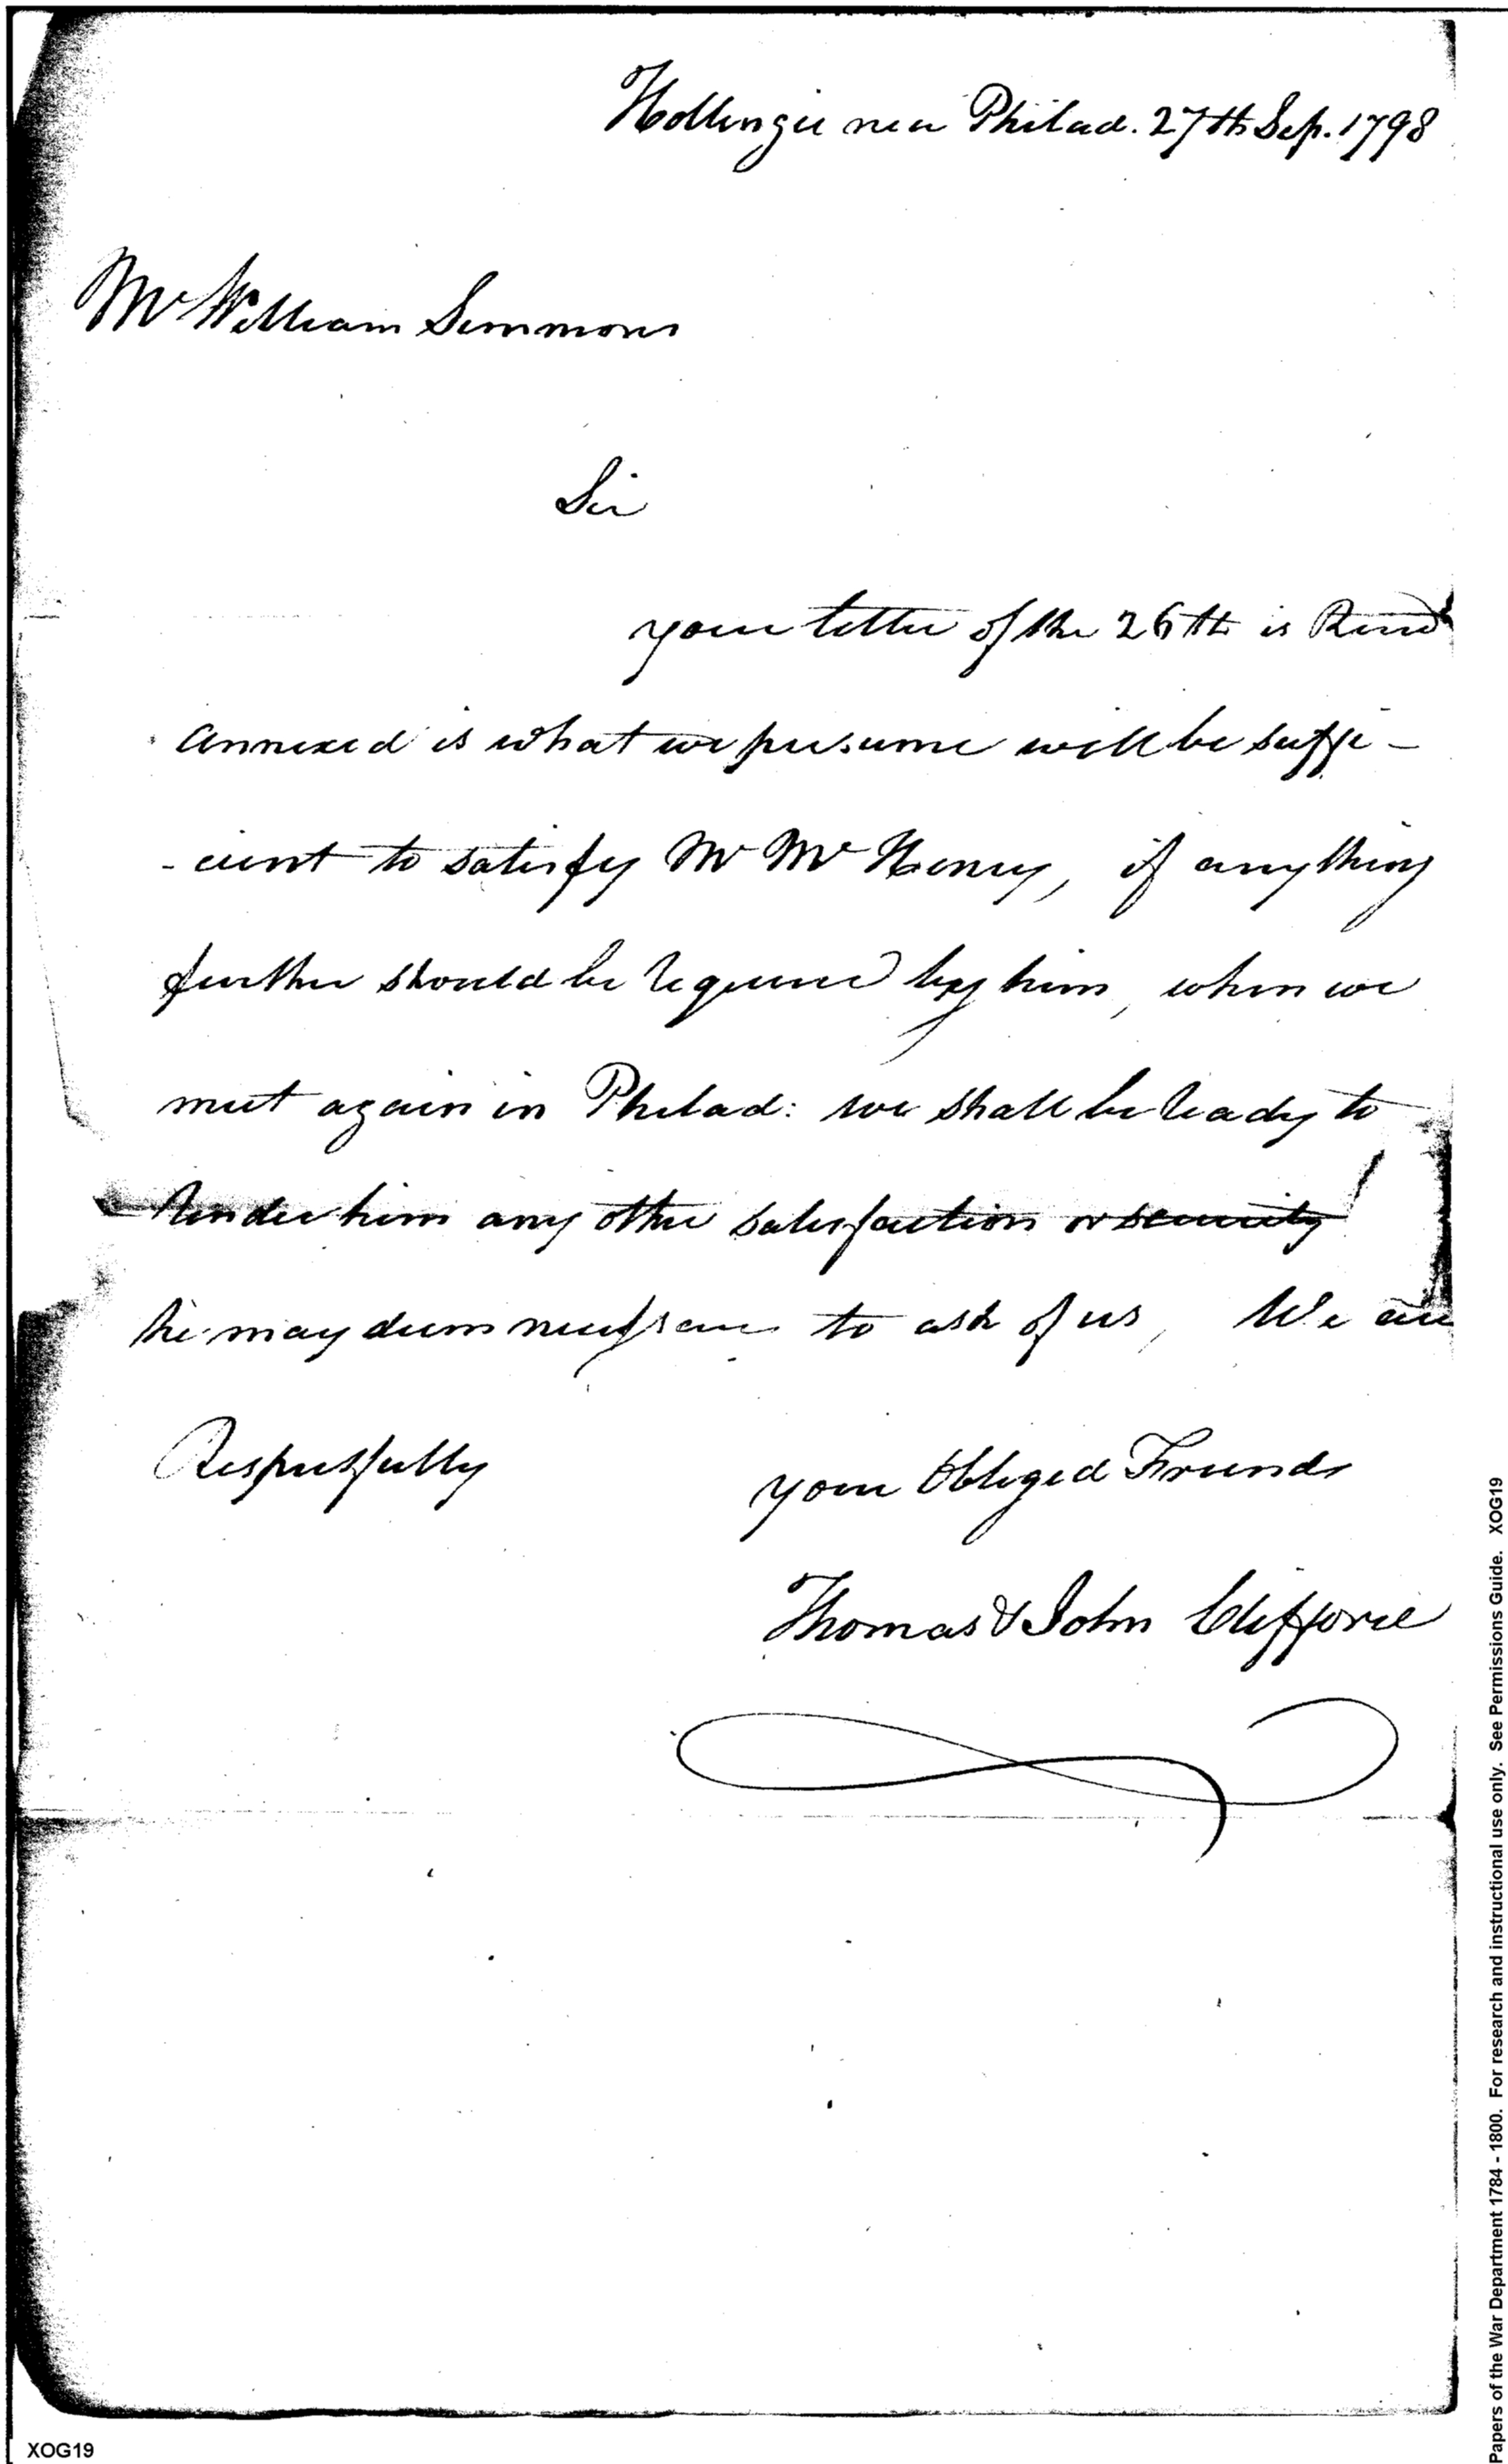 Hollingsee near Philad. 27th Sep. 1798
Mr William Simmons
Sir
your letter of the 26th is Recd
annexed is what we presume will be suffi-
-cient to satisfy Mr McHenry, if anything
further should be required by him, when we
meet again in Philad: we shall be ready to
Render him any other satisfaction or security
he may deem necessary to ask of us, We are
Respectfully your Obliged Friends
Thomas & John Clifford
Papers of the War Department 1784 - 1800. For research and instructional use only. See Permissions Guide. XOG19
XOG19